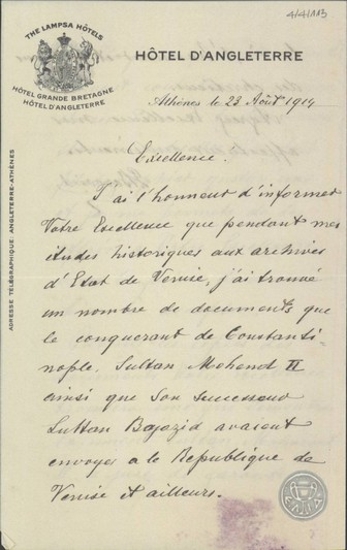 4/4/113
THE LAMPSA HÔTELS
HÔTEL GRANDE BRETAGNE
HÔTEL D'ANGLETERRE
HÔTEL D'ANGLETERRE
ADRESSE TÉLÉGRAPHIQUE ANGLETERRE-ATHÈNES
Athènes le 23 Août 1914
Excellence.
J'ai l'honneur d'informer
Votre Excellence que pendant mes
études historiques aux archives
d'Etat de Venise, j'ai trouvé
un nombre de documents que
le conquerant de Constanti-
nople, Sultan Mohend II
ainsi que son successeur
Sultan Bajazid avaient
envoyés a la Republique de
Venise et ailleurs.